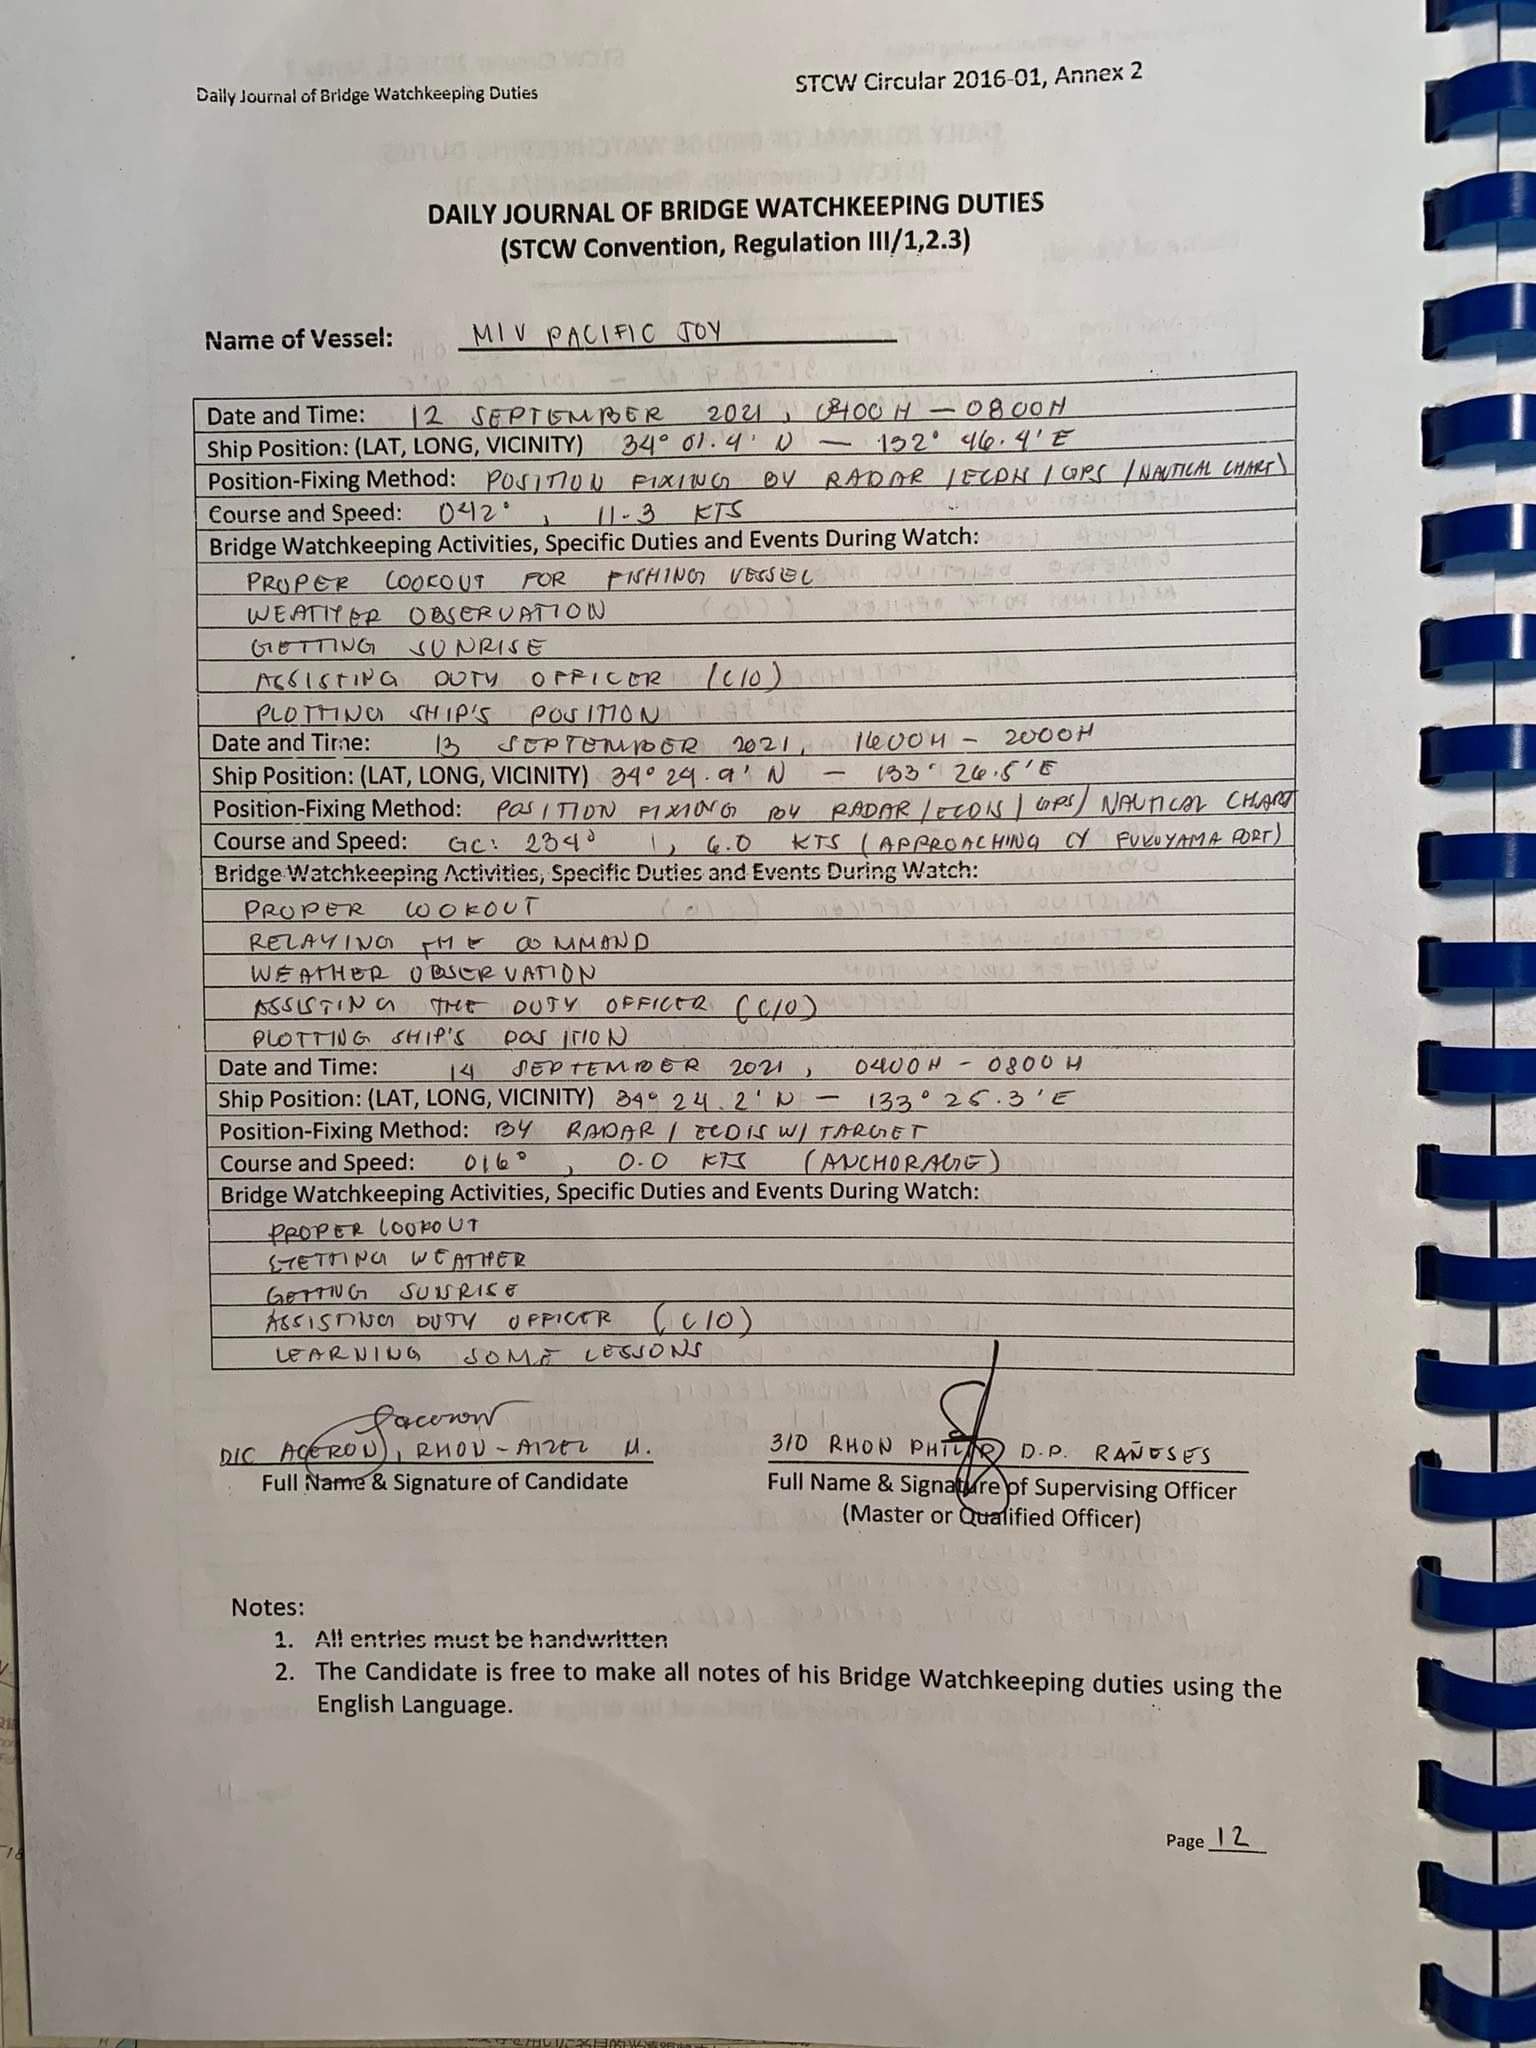 Daily Journal of Bridge Watchkeeping Duties
STCW Circular 2016-01, Annex 2
DAILY JOURNAL OF BRIDGE WATCHKEEPING DUTIES
(STCW Convention, Regulation III/1,2.3)
Name of Vessel: M/V PACIFIC JOY
Date and Time: 12 SEPTEMBER 2021, 0400H - 0800H
Ship Position: (LAT, LONG, VICINITY) 34° 01.4' N - 132° 46.4' E
Position-Fixing Method: POSITION FIXING BY RADAR / ECDIS / GPS / NAUTICAL CHART)
Course and Speed: 042°, 11.3 KTS
Bridge Watchkeeping Activities, Specific Duties and Events During Watch:
PROPER LOOKOUT FOR FISHING VESSEL
WEATHER OBSERVATION
GETTING SUNRISE
ASSISTING DUTY OFFICER (C/O)
PLOTTING SHIP'S POSITION
Date and Time: 13 SEPTEMBER 2021, 1600H - 2000H
Ship Position: (LAT, LONG, VICINITY) 34° 24.9' N - 133° 26.5' E
Position-Fixing Method: POSITION FIXING BY RADAR / ECDIS / GPS / NAUTICAL CHART
Course and Speed: GC: 234°, 6.0 KTS (APPROACHING FUKUYAMA PORT)
Bridge Watchkeeping Activities, Specific Duties and Events During Watch:
PROPER LOOKOUT
RELAYING THE COMMAND
WEATHER OBSERVATION
ASSISTING THE DUTY OFFICER (C/O)
PLOTTING SHIP'S POSITION
Date and Time: 14 SEPTEMBER 2021, 0400H - 0800H
Ship Position: (LAT, LONG, VICINITY) 34° 24.2' N - 133° 25.3' E
Position-Fixing Method: BY RADAR / ECDIS W/ TARGET
Course and Speed: 016°, 0.0 KTS (ANCHORAGE)
Bridge Watchkeeping Activities, Specific Duties and Events During Watch:
PROPER LOOKOUT
GETTING WEATHER
GETTING SUNRISE
ASSISTING DUTY OFFICER (C/O)
LEARNING SOME LESSONS
D/C ACERON, RHON-AIZEL M.
3/O RHON PHILIP D.P. RAÑESES
Full Name & Signature of Candidate
Full Name & Signature of Supervising Officer
(Master or Qualified Officer)
Notes:
1. All entries must be handwritten
2. The Candidate is free to make all notes of his Bridge Watchkeeping duties using the
English Language.
Page 12